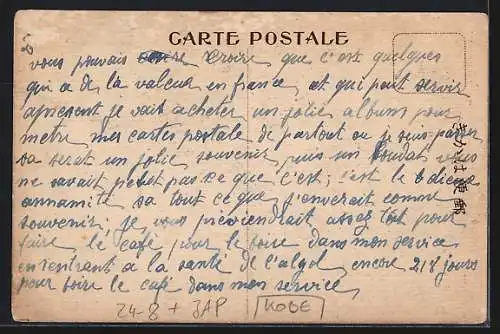 CARTE POSTALE
vous pouvais croire que c'est quelques
qui a de la valeur en france, et qui peut servir
apresent je vait acheter un jolie album pour
metre mes cartes postale de partout ou je suis passer
sa serat un jolie souvenir puis un vous
ne savait petet pas ce que c'est; c'est le
annamite sa tout ce que j'enverait comme
souvenir; je vous préviendrait assez tot pour
faire le café pour le boire dans mon service
en rentrant a la santé de l'algol encore 218 jours
pour boire le café dans mon service
24-8 + JAP KOBE
便郵